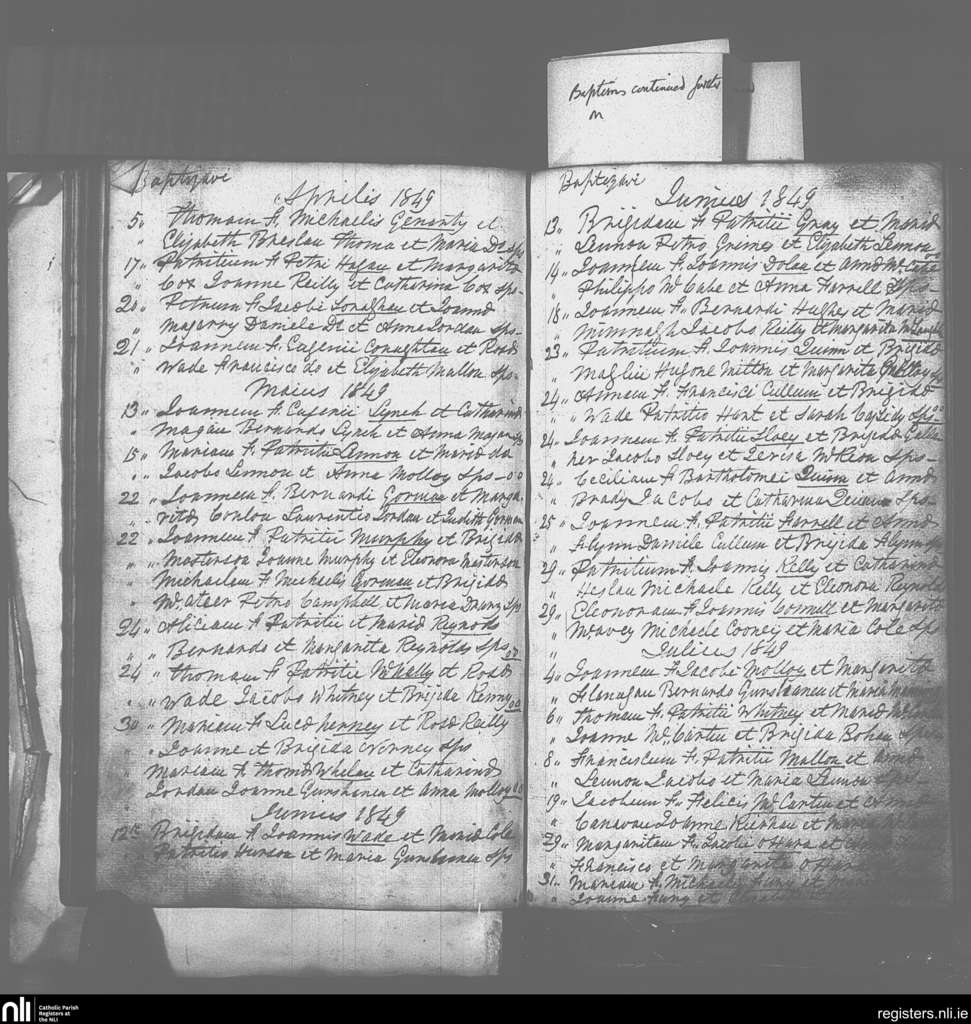 Baptisms continued further
on
Baptizavi
Aprilis 1849
5 " Thomam F. Michaelis et
" Elizabeth Breslau Thoma et Maria Do sps
17 " Patritium F. Petri Hagan et Margarita
" Cox Joanne Reilly et Catharina Cox Sps-
20 " Petrum F. Jacobi Lonaghan et Joanna
" Magarry Daniele Dt et Anna Jordan Sps-
21 " Joannem F. Eugenii Conaghtan et Rosa
" Wade Francisco do et Elizabeth Mallon Sps-
Maius 1849
13 " Joannem F. Eugenii Lynch et Catharina
" Magan Bernardo Lynch et Anna Magan
15 " Mariam F. Patritii Lennon et Maria do
" Jacobo Lennon et Anna Molloy Sps-00
22 " Joannem F. Bernardi Gorman et Marga
" rita Conlon Laurentio Jordan et Judith Gorman
22 " Joannem F. Patritii Murphy et Brigida
" " Masterson Joanne Murphy et Eleonora Masterson
" Michaelem F. Michaelis Gorman et Brigida
" Mc.Ateer Petro Campbell et Maria Sps
24 " Aliciam F. Patritii et Maria Reynods
" " Bernardo et Margarita Reynolds Sps 00
24 " Thomam F. Patritii Whally et Rosa
" " Wade Jacobo Whitney et Brigida Kenny 00
30 " Mariam F. Luca Nerney et Rosa Reilly
" " Joanne et Brigida Nerney Sps
" Mariam F. Thoma Whelan et Catharina
Jordan Joanne Gunshinan et Anna Molloy 00
Junius 1849
12th Brigidam F. Joannis Wade et Maria Cole
Patritio et Maria Gunshinan Sps
Baptizavi
Junius 1849
13 " Brigidam F. Patritii Gray et Maria
" Lennon Petro Grimes et Elizabeth Lennon 00
14 " Joannem F. Joannis Dolan et Anna Mc.Cabe
" Philippo Mc Cabe et Anna Farrell Sps-
18 " Joannem F. Bernardi Hughes et Maria
" Mimnagh Jacobo Reilly et Margarita
23 " Patritium F. Joannis Quinn et Brigida
" Maglin Hugone Mitton et Margarita
24 " Annam F. Francisci Cullum et Brigida
" " Wade Patritio Hart et Sarah Cassidy Sps
24 " Joannem F. Patritii Sloey et Brigida Galla
" her Jacobo Sloey et Teresa McKeon Sps-
24 " Ceciliam F. Bartholomei Quinn et Anna
" Brady Jacobo et Catharina Quinn Sps-
25 " Joannem F. Patritii Farrell et Anna
" Flynn Daniele Cullum et Brigida Flynn
29 " Patritium F. Joannis Kelly et Catharina
" Heslan Michaele Kelly et Eleonora Reynolds
29 " Eleonoram F. Joannis Cormell et Margarita
" McAvey Michaele Cooney et Maria Cole Sps
Julius 1849
4 " Joannem F. Jacobi Molloy et Margarita
" Flanagan Bernardo Gunshinan et Maria
6 " Thomam F. Patritii Whitney et Maria
" Joanne Mc.Cartin et Brigida Bohan Sps
8 " Franciscum F. Patritii Mallon et Anna
" Lennon Jacobo et Maria Lennon Sps
19 " Jacobum F. Felicis Mc Cartin et
" Canavan Joanne Kiernan et Maria
29 " Margaritam F. Jacobi OHara et
" Francisco et Margarita OHara
31 " Mariam F. Michaelis et
" Joanne et
nli
Catholic Parish
Registers at
the NLI
registers.nli.ie